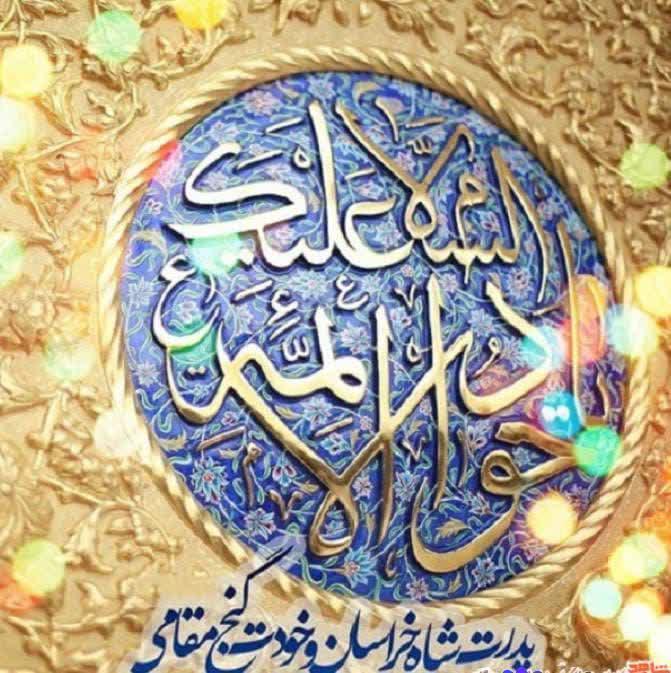 السلام علیک
جواد الائمه
پدرت شاه خراسان و خودت گنج مقامی